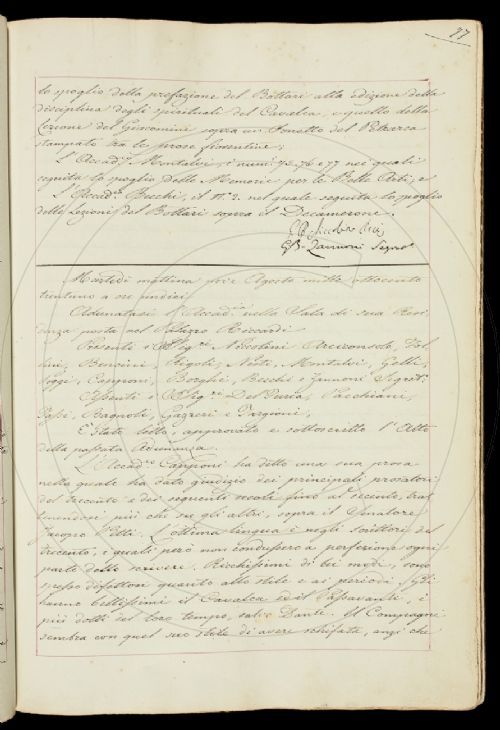 77
lo spoglio della prefazione del Bottari alla edizione della
disciplina degli spirituali del Cavalca, e quello della
Lezione del Giacomini sopra un Sonetto del Petrarca
stampato tra le prose fiorentine;
L'Accad.co Montalvi, i numi 75. 76 e 77 nei quali
seguita lo spoglio delle Memorie per le Belle Arti; e
L'Accad.co Becchi, il n.o 3. nel quale seguita lo spoglio
delle Lezioni del Bottari sopra il Decamerone.
G.B. Zannoni Segret.
Martedì mattina Agosto mille ottocento
trentuno a ore undici
Adunatasi l'Accad.ia nella Sala di sua Resi
denza posta nel Palazzo Riccardi
Presenti i Sig.ri Niccolini Arciconsolo, Fol
lini, Bencini, Rigoli, Nesti, Montalvi, Gelli,
Poggi, Capponi, Borghi, Becchi e Zannoni Segret.
Assenti i Sig.ri Del Furia, Pacchiani,
Bagnoli, Gazzeri e Targioni,
È stato letto, approvato e sottoscritto l'Atto
della passata Adunanza.
L'Accad.co Capponi ha detto una sua prosa
nella quale ha dato giudizio dei principali prosatori
del trecento e dei seguenti secoli fino al secento, trat
tenendosi più che su gli altri, sopra il Senatore
Jacopo Nelli. L'ottima lingua è negli scrittori del
trecento, i quali però non condussero a perfezione ogni
parte dello scrivere. Ricchissimi di bei modi, sono
spesso difettosi quanto allo stile e ai periodi. Gli
hanno bellissimi il Cavalca ed il Passavanti, i
più dotti del loro tempo, salvo Dante. Il Compagni
sembra con quel suo stile di avere schifata, anzi che